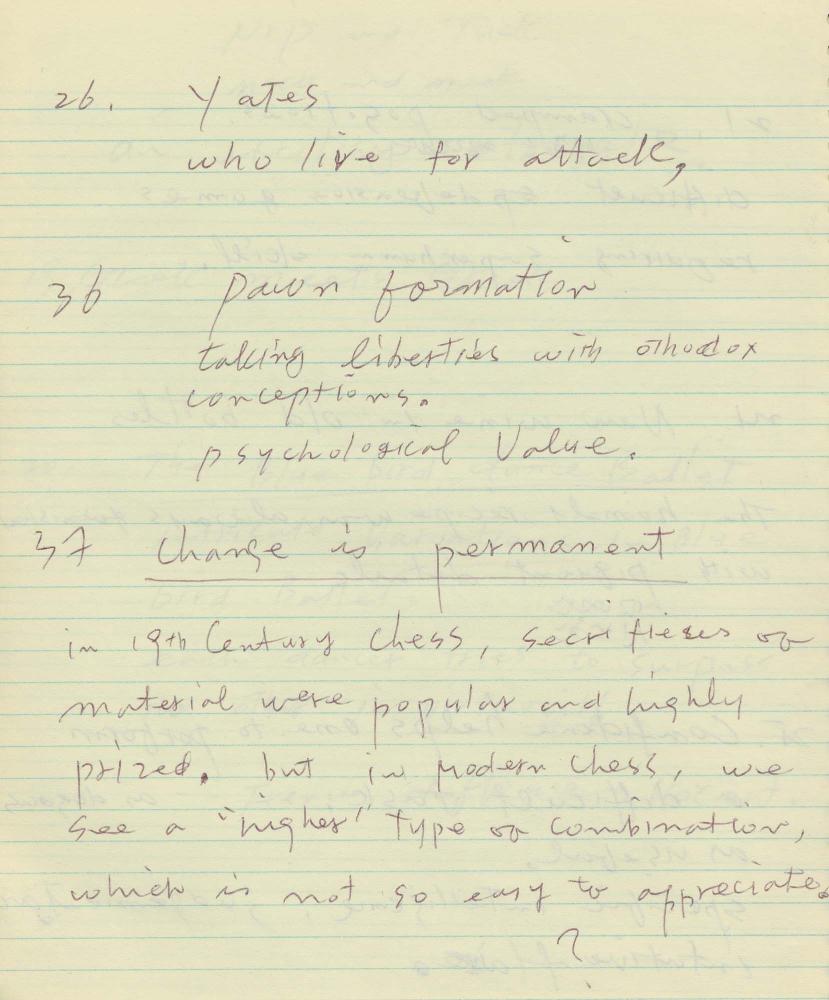 26. Yates
who live for attack,
36 pawn formation
taking liberties with othodox
conceptions.
psychological Value.
37 Change is permanent
in 19th Century Chess, secrifieses of
material were popular and highly
prized. but in modern chess, we
see a "higher" type of combination,
which is not so easy to appreciate.
?